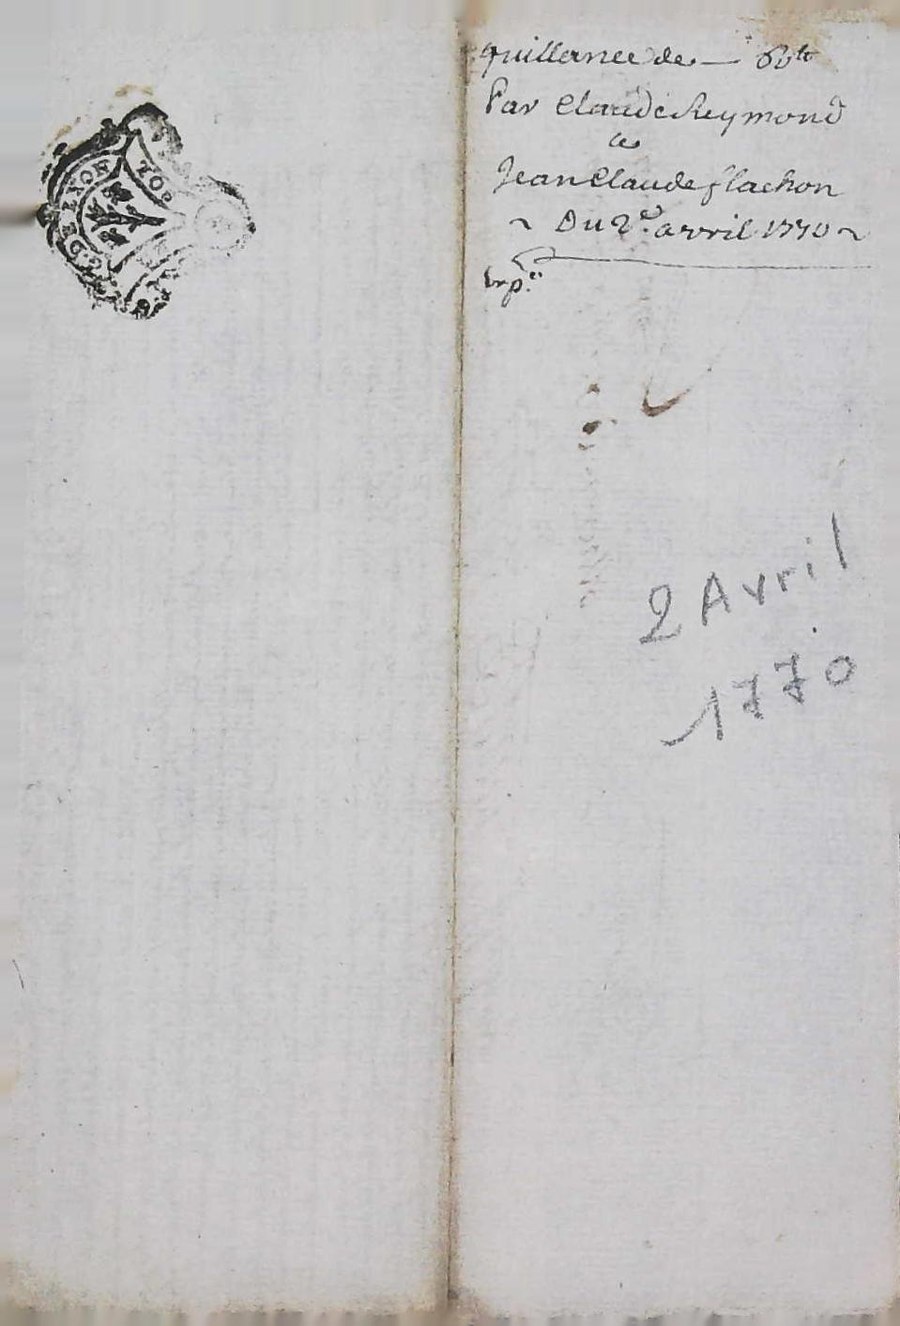 G. DE LYON
quittance de — 60 lt
Par Claude Reymond
a
Jean Claude flachon
~ Du 2e. avril 1770 ~
2 Avril
1770